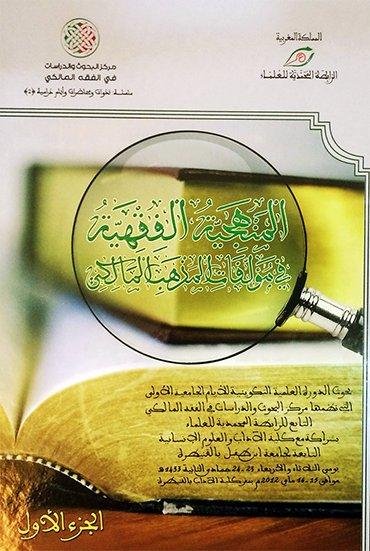 المملكة المغربية
الرابطة المحمدية للعلماء
مركز البحوث والدراسات
في الفقه المالكي
سلسلة: ندوات ومحاضرات وأيام دراسية
المنهجية الفقهية
في مؤلفات المذهب المالكي
بحوث الدورة العلمية التكوينية للأيام الجامعية الأولى
التي نظمها مركز البحوث والدراسات في الفقه المالكي
التابع للرابطة المحمدية للعلماء
بشراكة مع كلية الآداب والعلوم الإنسانية
التابعة لجامعة ابن طفيل بالقنيطرة
يومي الثلاثاء والأربعاء 23-24 جمادى الثانية 1433 هـ
موافق 15-16 ماي 2012م بمقر كلية الآداب بالقنيطرة
الجزء الأول